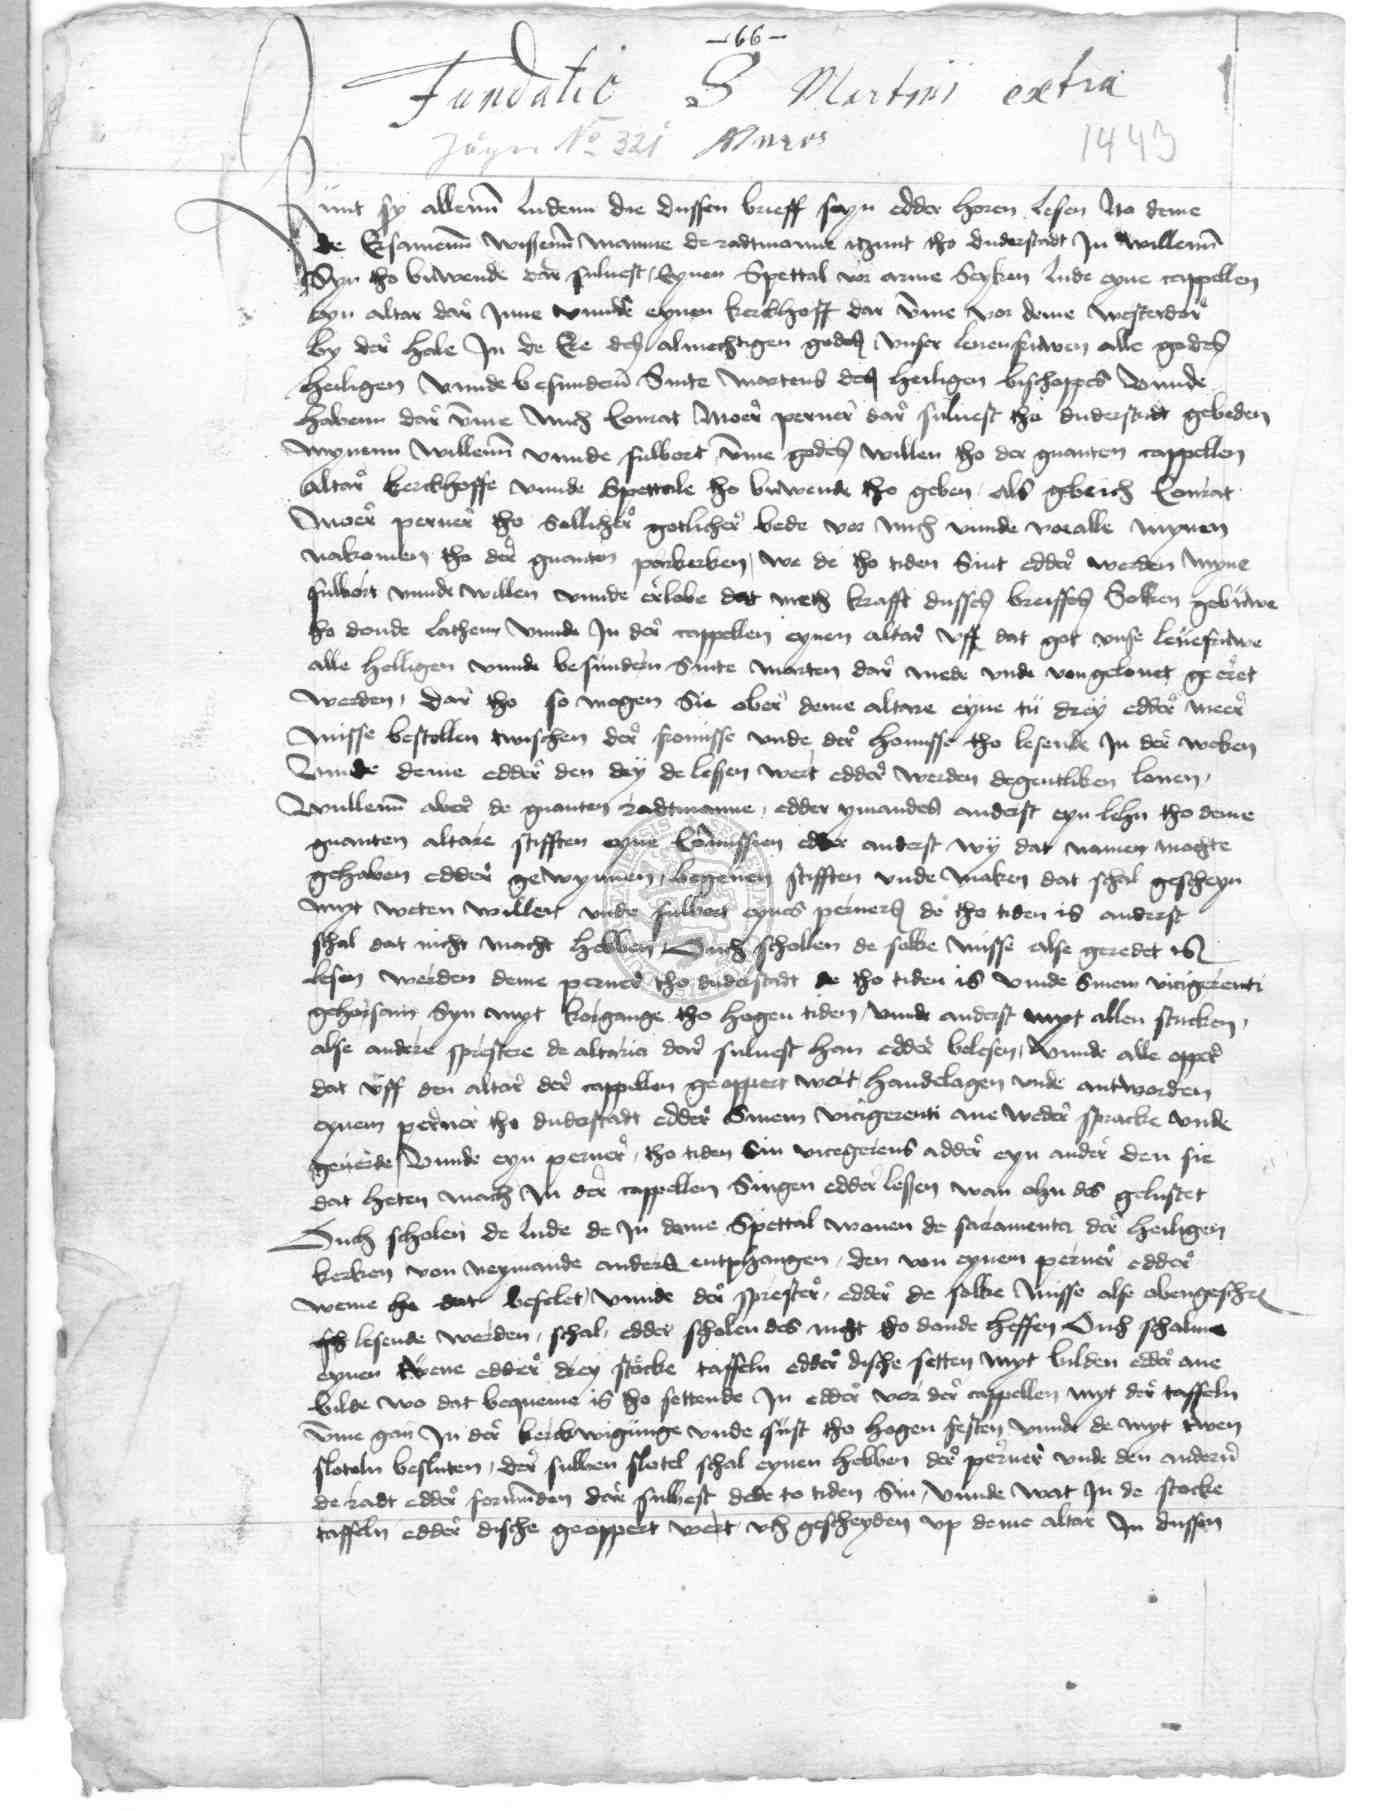 -66-
Fundatio S Martini extra
Jäger No 321 Muros 1443
Kunt sy allenn ludenn die dussen brieff seyn edder horen lesen No deme
de Ersamenn wissenn manne de radtmanne itzunt tho duderstadt In willenn
Syn tho buwende dar suluest Eynen Spettal vor arme Seyken lude eyne cappellen
eyn altar dar Inne vnnde eynen kerckhoff dar vme vor deme westerdor
by der hole In de Ere des almechtigen godes vnser leuenfruwen alle godes
heiligen vnnde besundern Sinte martens des heiligen bischoppes Vnnde
habenn dar vme mich Conrat Moer perner dar suluest tho duderstadt gebeden
mynenn willenn vnnde fulbort vme godes willen tho der gnanten cappellen
altar kerckhoffe vnnde Spettale tho buwende tho geben als gebe ich Conrat
Moer perner tho sollicher gotlicher bede vor mich vnnde vor alle mynen
nakomen tho der gnanten parkerken we de tho tiden Sint edder werden myne
fulbort vnnde willen vnnde erlobe dat meth krafft dusses breiffes Solken gebuwe
tho donde lathenn vnnde In der cappellen eynen altar vff dat got vnse leuefruwe
alle helligen vnnde besundern Sinte marten dar mede vnde von gelouet geeret
werden dar tho so mogen Sie ober deme altare eyne tu drey edder meer
misse bestellen twischen der fromisse vnde der homisse tho lesende In der weken
Vnnde deme edder den dey de lessen wert edder werden degentliken lonen
Wullenn aber de gnanten radtmanne edder ymandes anderst eyn lehn tho deme
gnanten altare stifften eyne Comissien edder anderst wy dat namen mochte
gehaben edder gewynnen begeuen stifften vnde maken dat schal gescheyn
myt weten willen vnde fulbort eynes perners de tho tiden is anderst
schal dat nicht macht hebben Ouch schollen de solke misse alse geredet is
lesen werden deme perner tho duderstadt de tho tiden is vnnde sinem vicigerenti
gehorsam Syn myt korgange tho hogen tiden vnnde anderst myt allen stucken
alse andere prestere de altaria dar suluest han edder belesen vnnde alle opper
dat vff den altar der cappellen geoppert wert handelagen vnde antworden
eynem perner tho duderstadt edder Sinem vicigerenti ane weder spracke vnde
geuerde Vnnde eyn perner tho tiden Sin vicegerens adder eyn ander den sie
dat heten mach In der cappellen Singen edder lessen wan ohn des gelustet
Ouch scholen de lude de In deme Spettal wonen de sacramenta der heiligen
kerken von neymande anders entphangen den von eynem perner edder
weme he dat befelet vnnde der prester edder de solke misse alse obengeschr
lesende werden schal edder scholen des nicht tho donde heffen Ouch schalme
eynen twene edder drey stocke taffeln edder dische setten myt bilden edder ane
bilde wo dat bequeme is tho settende In edder vor der cappellen myt der taffeln
vme gan In der kerckwigunge vnde sust tho hogen festen vnnde de myt twen
sloteln besluten der suluen slotel schal eynen hebben der perner vnde den andern
de radt edder formunden dar suluest dede to tiden Sin vnnde wat In de stocke
taffeln edder dische geoppert wert vth gescheyden vp deme altar In dussen